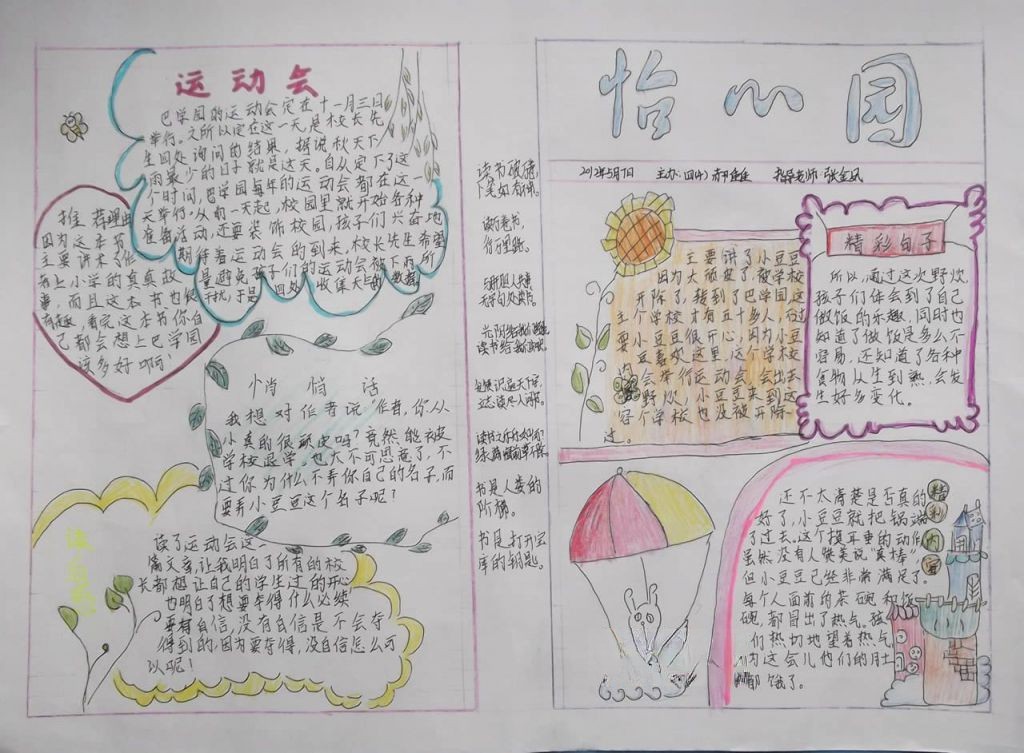 运动会
巴学园的运动会定在十一月三日
举行。之所以定在这一天是校长先
生四处询问的结果，据说秋天下
雨最少的日子就是这天。自从定下了这
个时间，巴学园每年的运动会都在这一
天举行。从前一天起，校园里就开始各种
准备活动，还要装饰校园，孩子们兴奋地
期待着运动会的到来，校长先生希望
量避免孩子们的运动会被下雨所
干扰，于是 四处 收集天上的数据
推荐理由
因为这本书
主要讲术了作
者上小学的真真故
事，而且这本书也很
有趣，看完这本书你自
己都会想上巴学园
该多好啊！
悄悄话
我想对作者说，作者，你从
小真的很顽皮吗？竟然能被
学校退学，也太不可思意了，不
过你为什么不弄你自己的名子，而
要弄小豆豆这个名子呢？
读了运动会这一
篇文章，让我明白了所有的校
长都想让自己的学生过的开心
也明白了想要夺得什么必须
要有自信，没有自信是不会夺
得到的，因为要夺得，没自信怎么可
以呢！
读书破万卷，
下笔如有神。
读万卷书，
行万里路。
读书给我
书是人类的
阶梯。
书是打开宝
库的钥匙。
怡心园
2012年5月7日 主办：四(4) 指导老师：张
主要讲了小豆豆
因为太顽皮了，被学校
开除了，转到了巴学园，这
个学校才有五十多人，不过
小豆豆很开心，因为小豆
豆喜欢这里，这个学校
会举行运动会，会出去
野炊，小豆豆来到这
个学校也没被开除
过。
精彩句子
所以，通过这次野炊，
孩子们体会到了自己
做饭的乐趣，同时也
知道了做饭是多么不
容易，还知道了各种
食物从生到熟，会发
生好多变化。
精彩内容
还不太清楚是否真的
好了，小豆豆就把锅端
了过去。这个摸耳垂的动作
虽然没有人笑笑说“真棒”
但小豆豆已经非常满足了。
每个人面前的茶碗和饭
碗，都冒出了热气。孩
们热切地望着热气
因为这会儿他们的肚
都饿了。